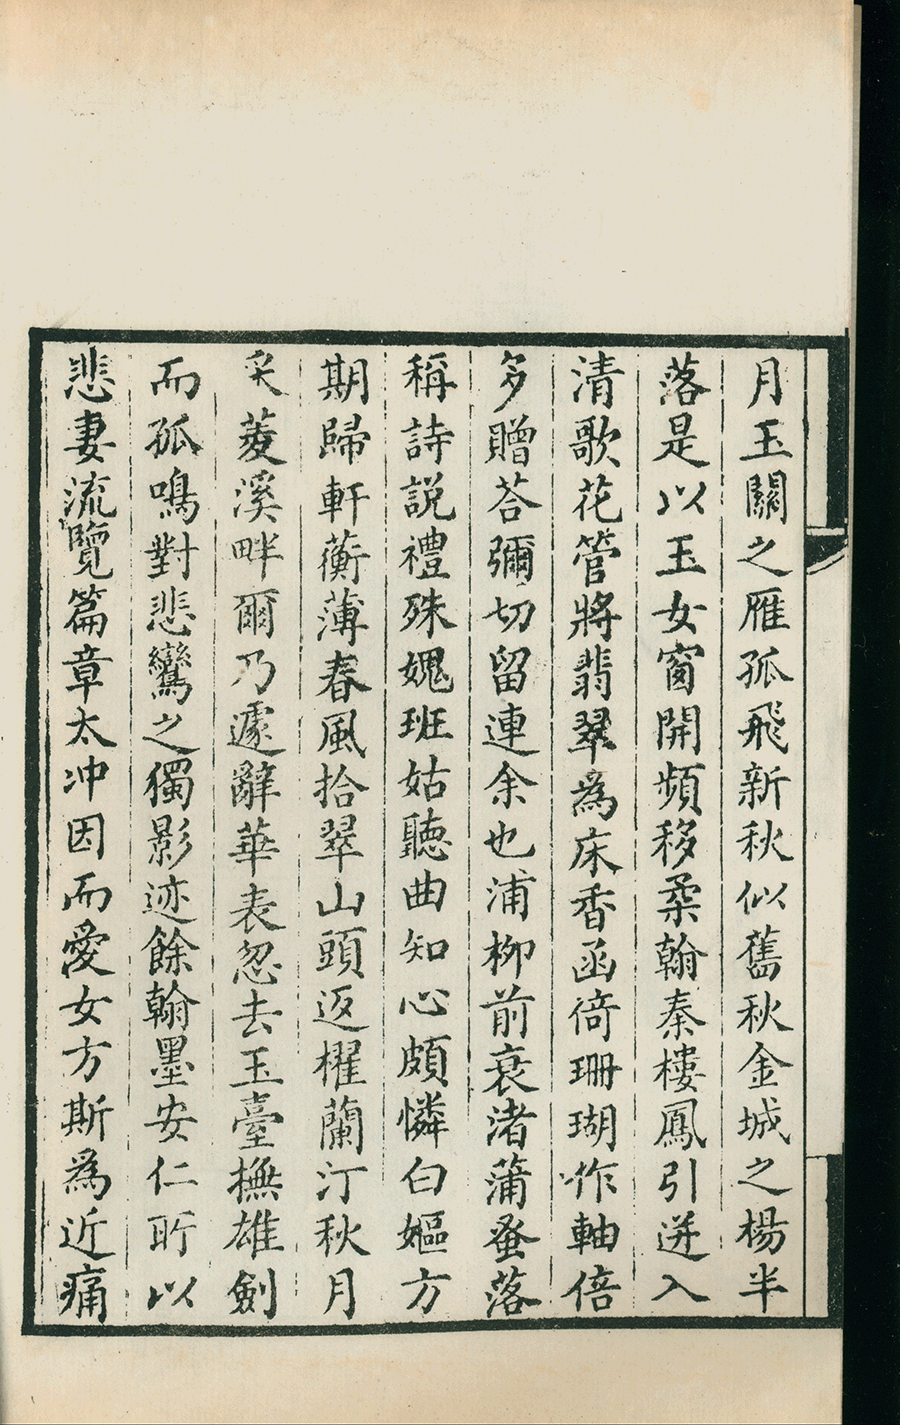 月玉關之雁孤飛新秋似舊秋金城之楊半
落是以玉女窗開頻移柔翰秦樓鳳引迸入
清歌花管將翡翠為床香函倚珊瑚作軸倍
多贈荅彌切留連余也浦柳前衰渚蒲蚤落
稱詩説禮殊媿班姑聽曲知心頗憐白嫗方
期歸軒蘅薄春風拾翠山頭返櫂蘭汀秋月
采菱溪畔爾乃遽辭華表忽去玉臺撫雄劍
而孤鳴對悲鸞之獨影迹餘翰墨安仁所以
悲妻流覽篇章太冲因而愛女方斯為近痛